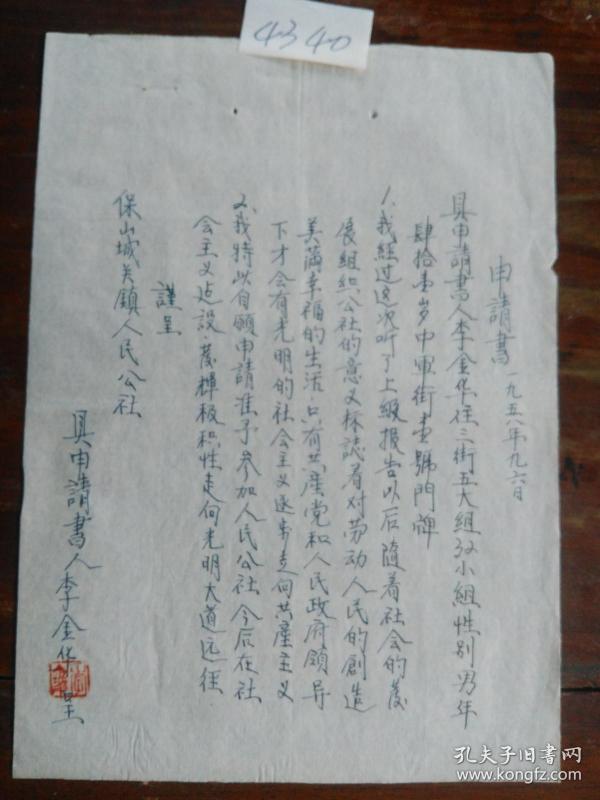 4340
申請書
一九五八年九六日
具申請書人李金华住三街五大組32小組性别男年
肆拾壹岁中軍街壹號門牌
1、我經过这次听了上級报告以后随着社会的发
展組织公社的意义标誌着对劳动人民的創造
美满幸福的生活.只有共產党和人民政府領导
下才会有光明的社会主义逐步走向共產主义
2、我特以自願申請准予參加人民公社今后在社
会主义建設.发輝极积性走向光明大道远往.
謹呈
保山城关鎮人民公社
具申請書人李金华呈
孔夫子旧書网
www.kongfz.com